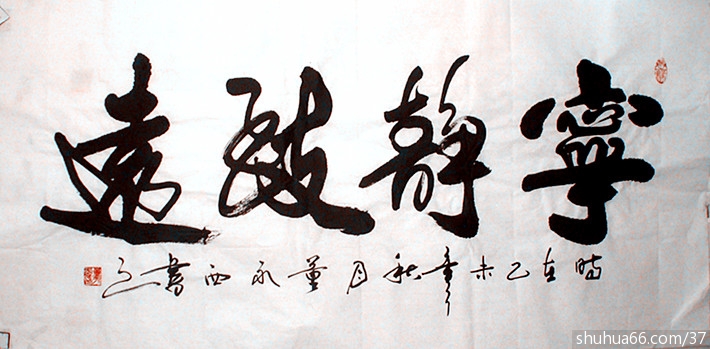 寧靜致遠
時在乙未季秋月董永西書之
shuhua66.com/37